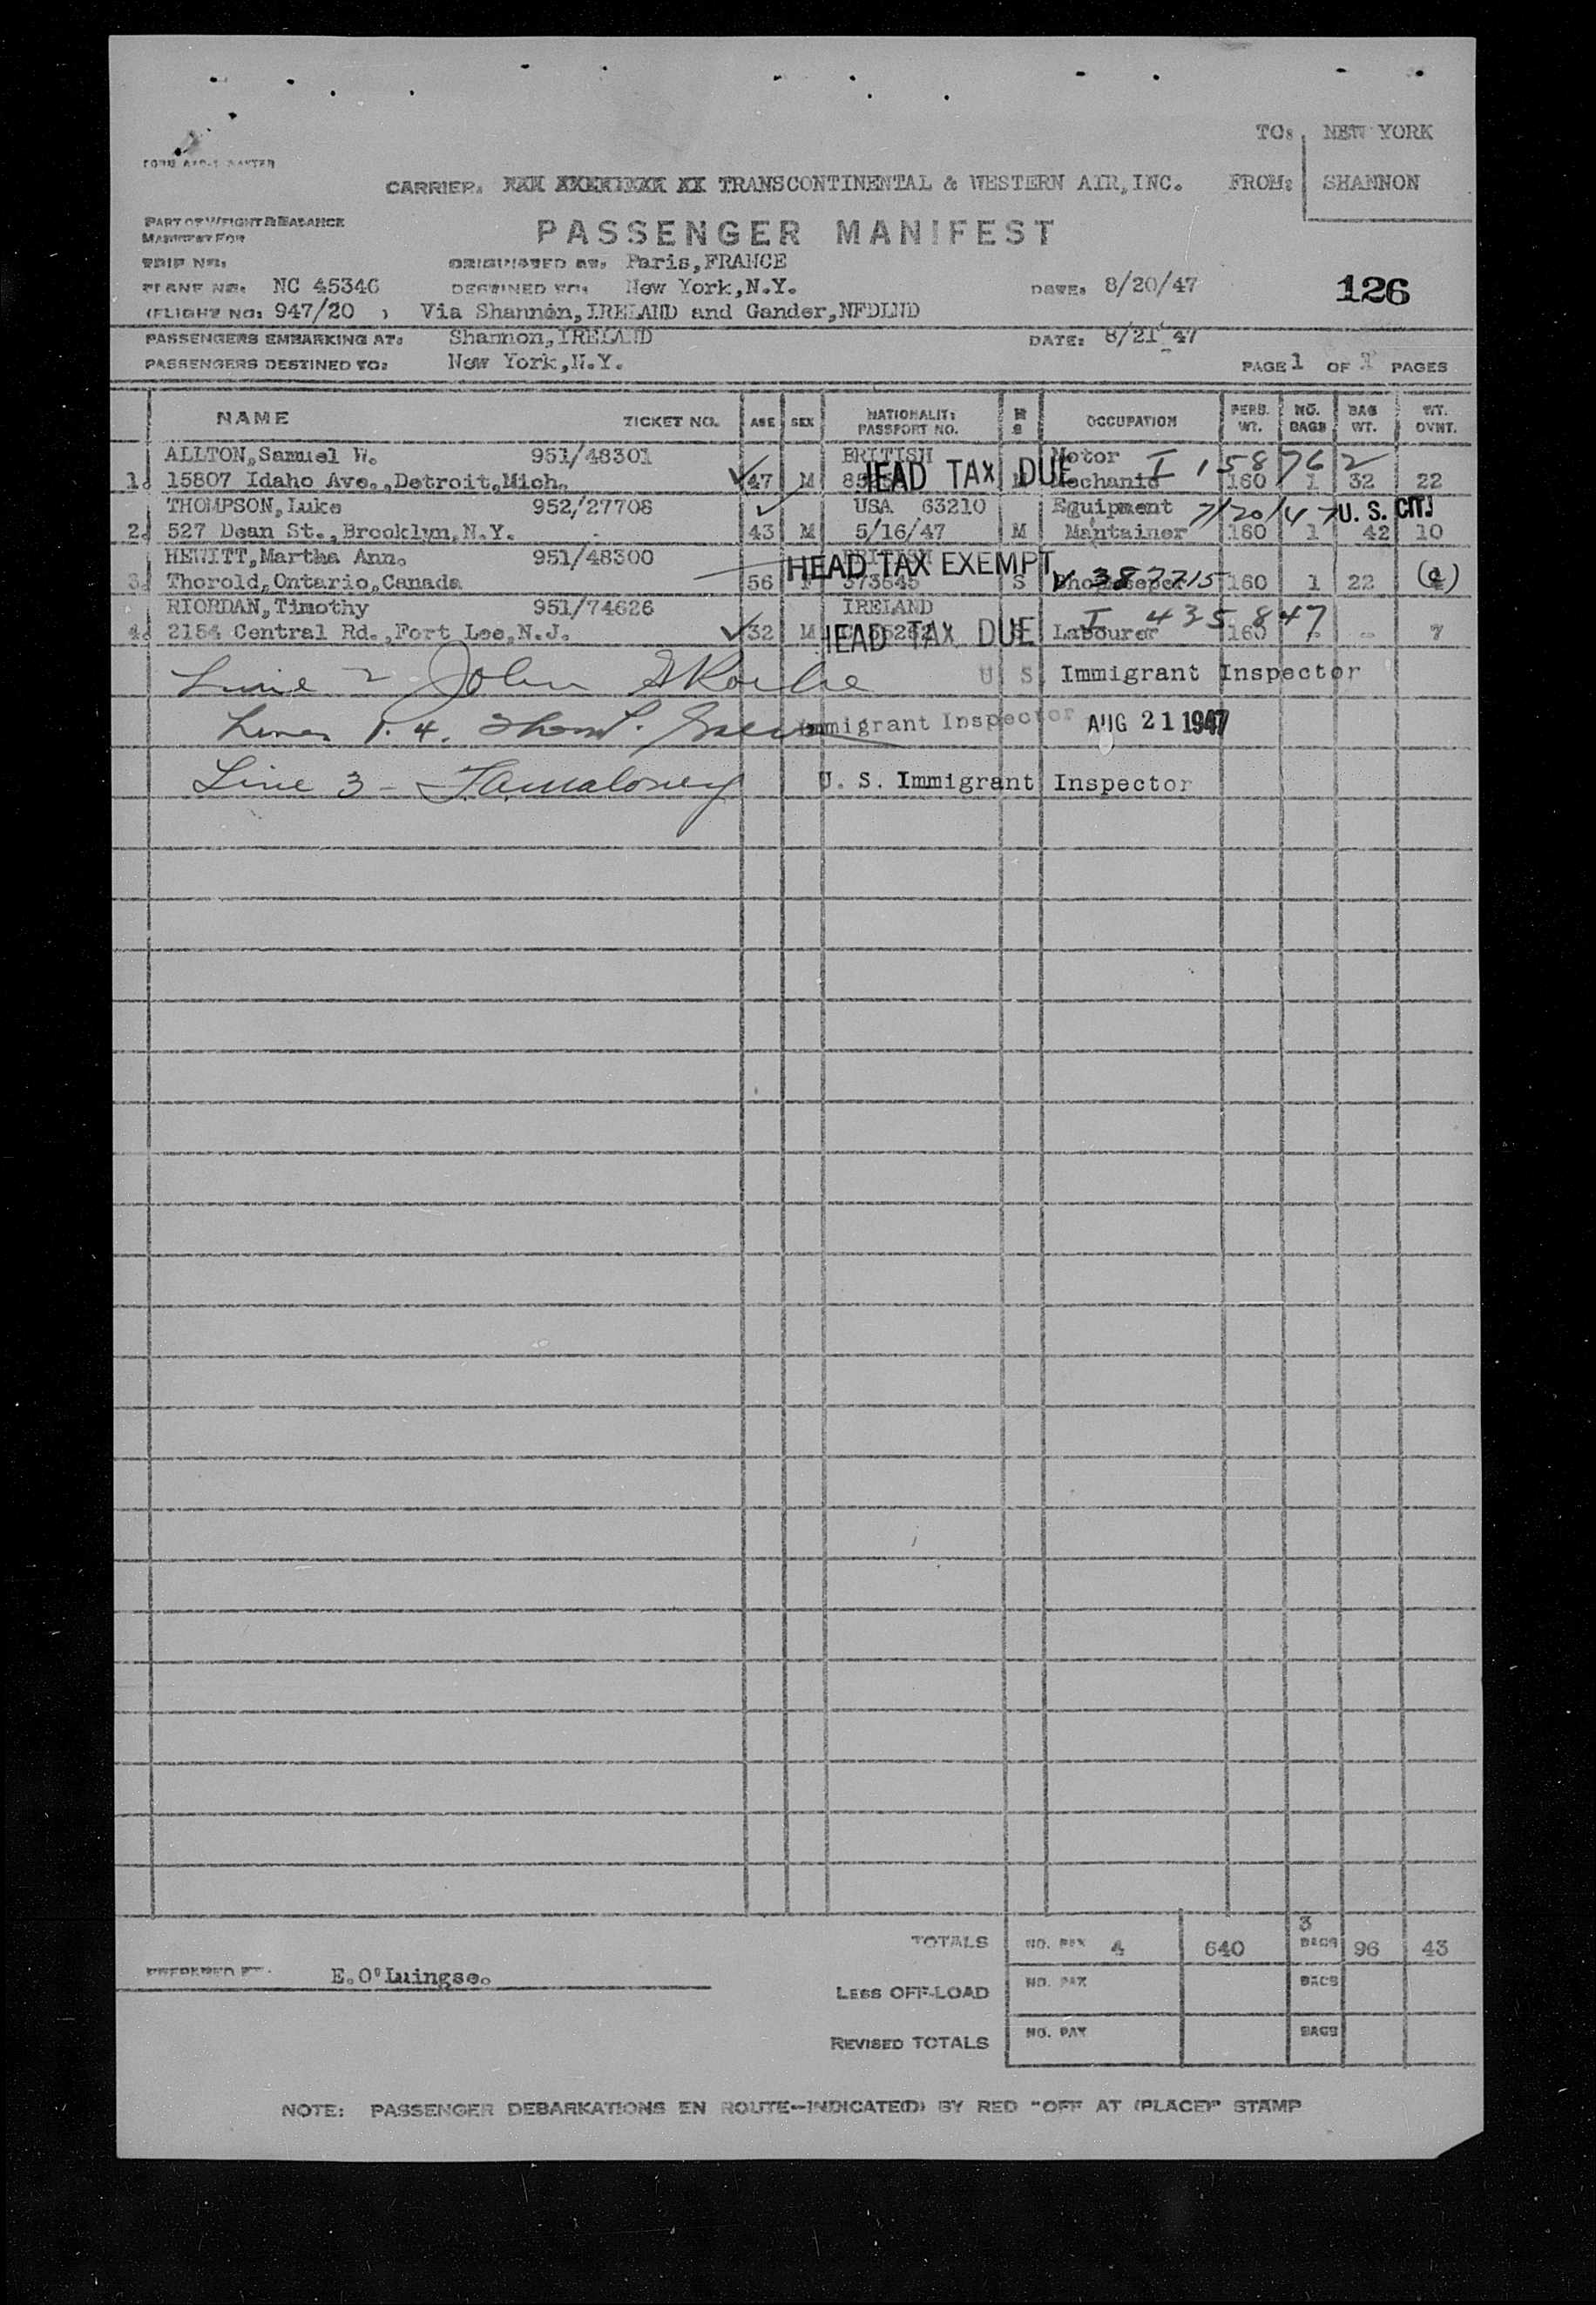 TO: NEW YORK
CARRIER: TRANSCONTINENTAL & WESTERN AIR, INC. FROM: SHANNON
PART OF WEIGHT & BALANCE
MANIFEST FOR
PASSENGER MANIFEST
TRIP NO: ORIGINATED AT: Paris, FRANCE
PLANE NO: NC 45346 DESTINED TO: New York, N.Y. DATE: 8/20/47 126
(FLIGHT NO: 947/20 ) Via Shannon, IRELAND and Gander, NFDLND
PASSENGERS EMBARKING AT: Shannon, IRELAND DATE: 8/21 47
PASSENGERS DESTINED TO: New York, N.Y. PAGE 1 OF PAGES
NAME TICKET NO. AGE SEX NATIONALITY PASSPORT NO. M S OCCUPATION PERS. WT. NO. BAGS BAG WT. WT. OVNT.
ALLTON, Samuel W. 951/48301 BRITISH Motor I 158762
1. 15807 Idaho Ave., Detroit, Mich. 47 M HEAD TAX DUE Mechanic 160 1 32 22
THOMPSON, Luke 952/27708 USA 63210 Equipment 7/20/47 U. S. CIT.
2. 527 Dean St., Brooklyn, N.Y. 43 M 5/16/47 M Mantainer 160 1 42 10
HEWITT, Martha Ann. 951/48300 BRITISH HEAD TAX EXEMPT
3. Thorold, Ontario, Canada 56 F 573645 S V 387715 160 1 22 (c)
RIORDAN, Timothy 951/74626 IRELAND I 435847
4. 2154 Central Rd., Fort Lee, N.J. 32 M HEAD TAX DUE Labourer 160 - - 7
Line 2 John A Roche U S Immigrant Inspector
Lines 1. 4. Immigrant Inspector AUG 21 1947
Line 3 - Maloney U. S. Immigrant Inspector
TOTALS NO. PAX 4 640 3 BAGS 96 43
PREPARED BY: E. O'Luingse.
LESS OFF-LOAD NO. PAX BAGS
REVISED TOTALS NO. PAX BAGS
NOTE: PASSENGER DEBARKATIONS EN ROUTE—INDICATE(D) BY RED "OFF AT (PLACE)" STAMP